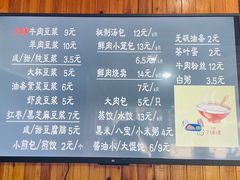 牛肉豆菜 9元
羊肉豆菜 10元
咸/甜/纯豆菜 3.5元
大杯豆菜 5元
油条荤菜豆菜 6元
虾皮豆菜 5元
红枣/黑芝麻豆菜 7元
咸/甜豆腐脑 5元
小煎包/煎饺 2元/个
杭制汤包 12元/
鲜肉小笼包 13元/
6.5元/
鲜肉烧卖 14元/
7元/
大肉包 5元/只
蒸饺/水饺 13元/
黑米/八宝/小米粥 4元
酱油小/大馄饨 6/9元
无矾油条 2元
茶叶蛋 2元
牛肉粉丝 12元
白粥 3.5元